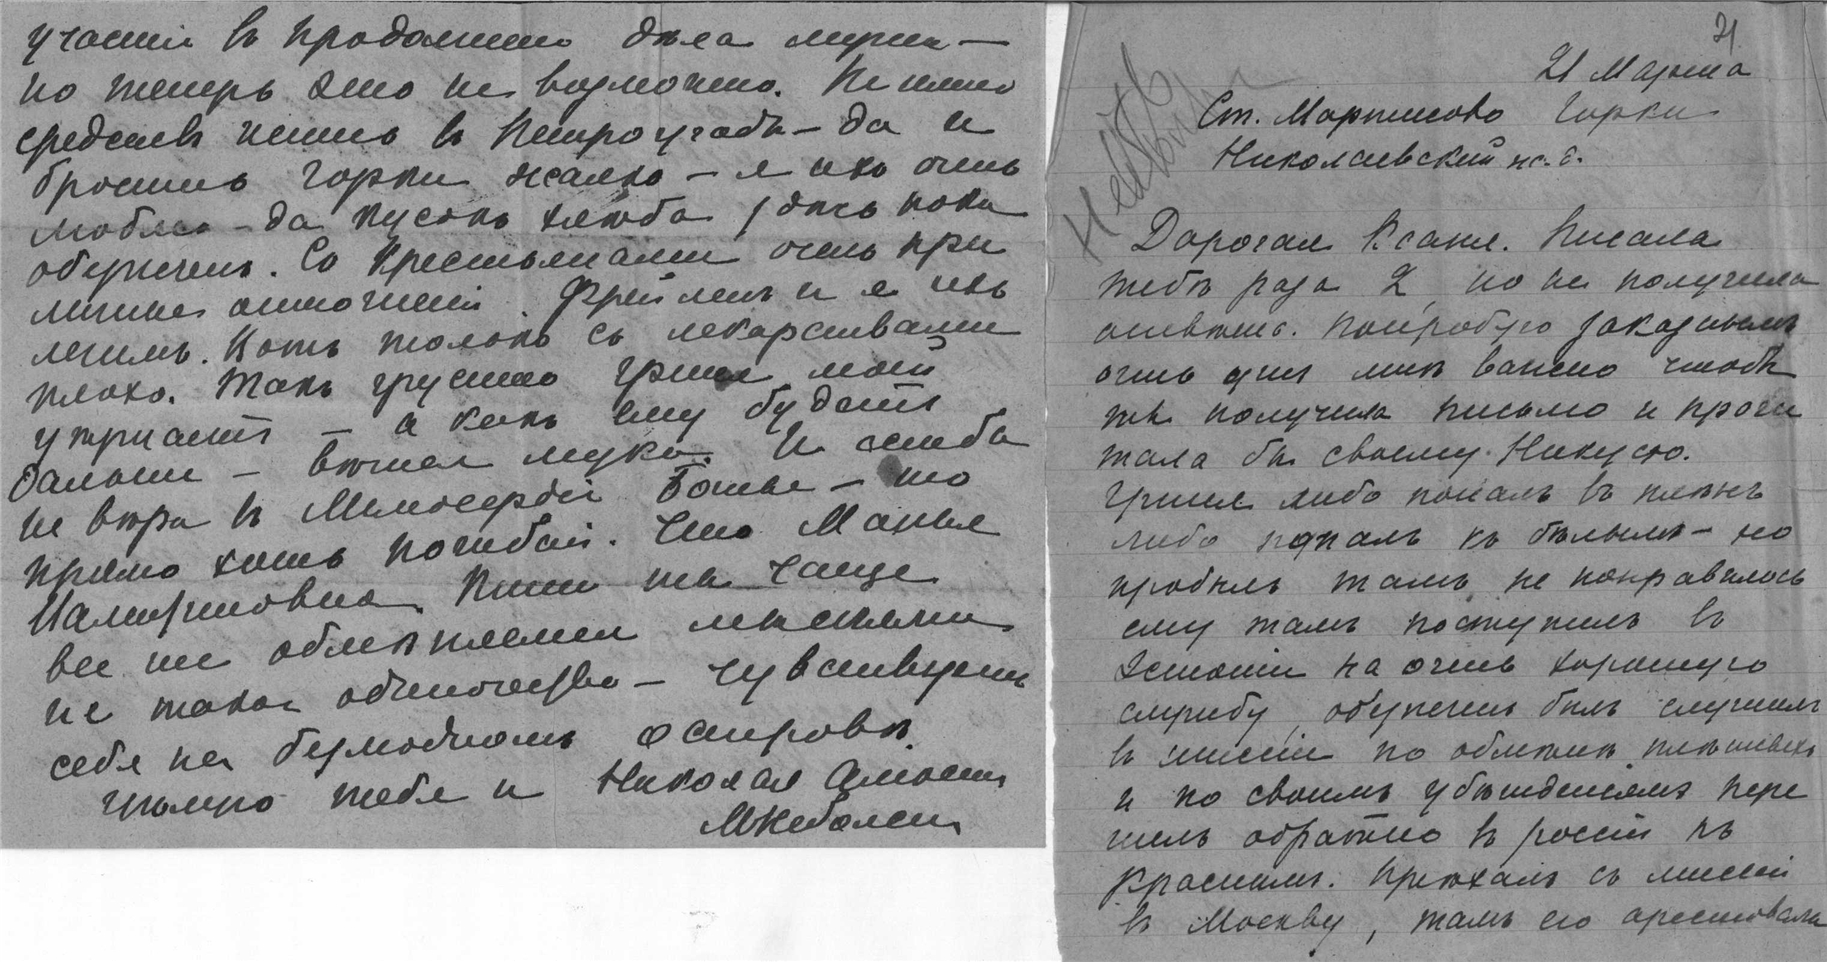 участiи въ продолженiи дѣла мужа —
но теперь это не возможно. Не имею
средствъ жить въ Петроградѣ — да и
бросить Горки жалко — я ихъ очень
люблю — да кусокъ хлѣба здѣсь пока
обезпеченъ. Со крестьянами очень при
личные отношенiя Фрейленъ и я ихъ
лечимъ. Вотъ только съ лекарствами
плохо. Такъ грустно Гриша мой
утрисаетъ — а какъ ему будетъ
дальше — вѣчная мука. И если бъ
не вѣра въ Милосердiе Божье — то
прямо хоть погибай. Что Марья
Пиши ты чаще
все же облегченiе
не такое одиночество — чувствуешь
себя на безлюдномъ островѣ.
Цѣлую тебя и Николая
21
21 Марта
Ст. Мартыново Горки
Николаевской ж. д.
Дорогая Ксанiя. Писала
тебѣ раза 2, но не получила
отвѣта. Попробую заказнымъ
очень ужъ мнѣ важно чтобъ
ты получила письмо и прочи
тала бы своему Никусю.
Гриша либо попалъ въ плѣнъ
либо попалъ къ бѣлымъ — но
пробылъ тамъ не понравилось
ему тамъ поступилъ въ
Эстонiи на очень хорошую
службу, обезпеченъ былъ служилъ
въ миссiи по обмѣну плѣнныхъ
и по своимъ убѣжденiямъ пере
шелъ обратно въ россiю къ
краснымъ. Прiѣхалъ съ миссiей
въ Москву, тамъ его арестовали